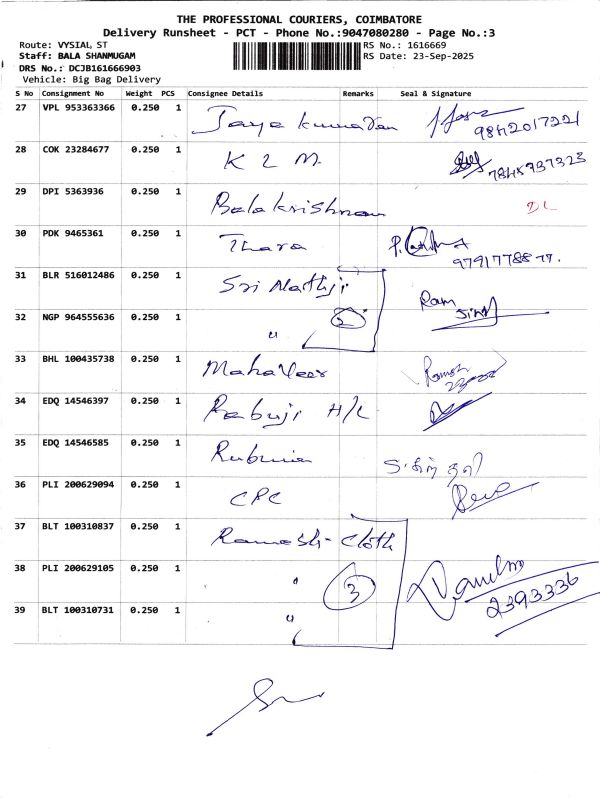 THE PROFESSIONAL COURIERS, COIMBATORE
Delivery Runsheet - PCT - Phone No.:9047080280 - Page No.:3
Route: VYSIAL, ST RS No.: 1616669
Staff: BALA SHANMUGAM RS Date: 23-Sep-2025
DRS No.: DCJB161666903
Vehicle: Big Bag Delivery
S No Consignment No Weight PCS Consignee Details Remarks Seal & Signature
27 VPL 953363366 0.250 1 Jaya Kumaran
9842017221
28 COK 23284677 0.250 1 K L M
29 DPI 5363936 0.250 1 Balakrishnan DL
30 PDK 9465361 0.250 1 Thara
31 BLR 516012486 0.250 1 Sri Nathji Ram
32 NGP 964555636 0.250 1 " 2 Singh
33 BHL 100435738 0.250 1 Mahaveer Ramesh
34 EDQ 14546397 0.250 1 Babuji H/L
35 EDQ 14546585 0.250 1
36 PLI 200629094 0.250 1 CPC
37 BLT 100310837 0.250 1 Ramesh- Cloth
38 PLI 200629105 0.250 1 " 3
2393336
39 BLT 100310731 0.250 1 "